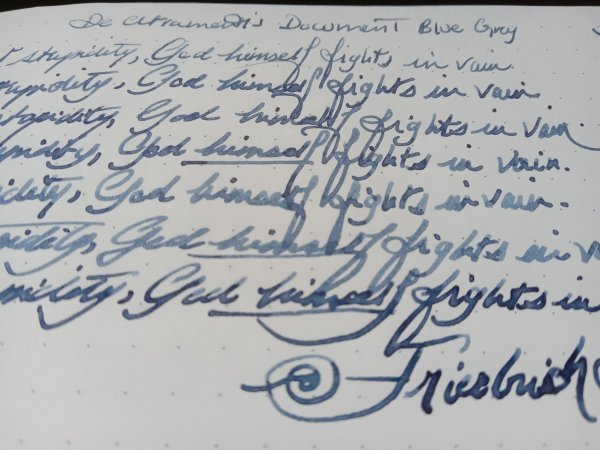 De Atramentis Document Blue Grey
stupidity, God himself fights in vain.
upidity, God himself fights in vain
tupidity, God himself fights in vain.
upidity, God himself fights in vain.
idity, God himself fights in vain.
pidity, God himself fights in v
pidity, God himself fights in
Friedrich